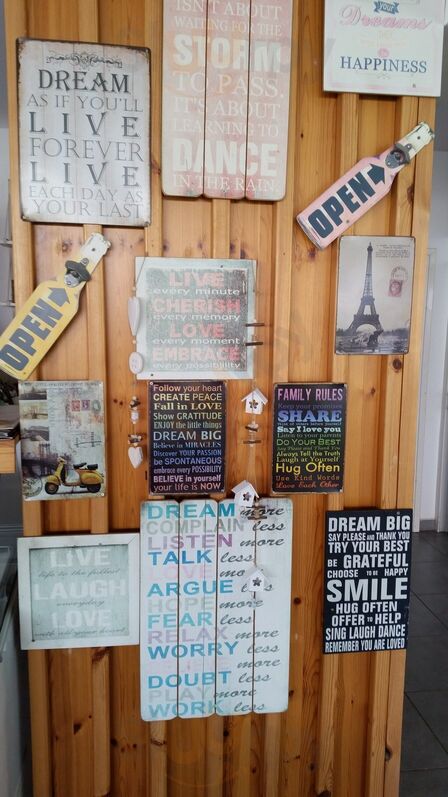 DREAM
AS IF YOU'LL
LIVE
FOREVER
LIVE
EACH DAY AS
YOUR LAST
ISN'T ABOUT
WAITING FOR THE
STORM
TO PASS.
IT'S ABOUT
LEARNING TO
DANCE
IN THE RAIN.
YOUR
DREAMS
HAPPINESS
OPEN
OPEN
LIVE
every minute
CHERISH
every memory
LOVE
every moment
EMBRACE
every possibility
Follow your heart
CREATE PEACE
Fall in LOVE
Show GRATITUDE
ENJOY the little things
DREAM BIG
Believe in MIRACLES
Discover YOUR PASSION
be SPONTANEOUS
embrace every POSSIBILITY
BELIEVE in yourself
your life is NOW
FAMILY RULES
Keep your promises
SHARE
Think of others before yourself
Say I love you
Listen to your parents
DO YOUR BEST
Say Please and Thank You
Always Tell the Truth
Laugh at Yourself
Hug Often
Use Kind Words
Love Each Other
LIVE
life to the fullest
LAUGH
everyday
LOVE
with all your heart
DREAM more
COMPLAIN less
LISTEN more
TALK less
ARGUE less
HOPE more
FEAR less
RELAX more
WORRY less
more
DOUBT less
PLAY more
WORK less
DREAM BIG
SAY PLEASE AND THANK YOU
TRY YOUR BEST
BE GRATEFUL
CHOOSE TO BE HAPPY
SMILE
HUG OFTEN
OFFER TO HELP
SING LAUGH DANCE
REMEMBER YOU ARE LOVED